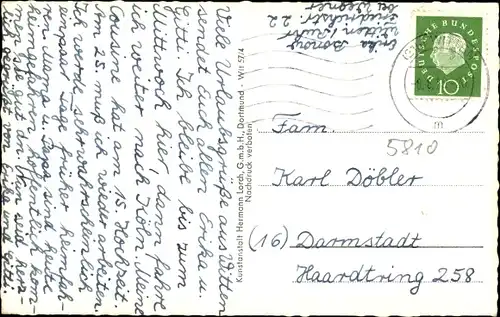 Viele Urlaubsgrüße aus Witten
sendet Euch allen Erika u.
Gitti. Ich bleibe bis zum
Mittwoch hier, dann fahre
ich weiter nach Köln. Meine
Cousine hat am 15. Hochzeit.
Am 25. muß ich wieder arbeiten.
Ich werde sehr wahrscheinlich
ein paar Tage früher heimfah-
ren. Mama u. Papa sind heute
gefahren, hoffentlich kom-
men sie gut an. Nun seid herz-
lich gegrüßt von Erika und Gitti.
Erika
Witten / Ruhr
22
bei Wegner
Kunstanstalt Hermann Lorch, G.m.b.H., Dortmund - Wit 57/4
Nachdruck verboten
DEUTSCHE BUNDESPOST
10
m
5810
Fam.
Karl Döbler
(16) Darmstadt
Haardtring 258